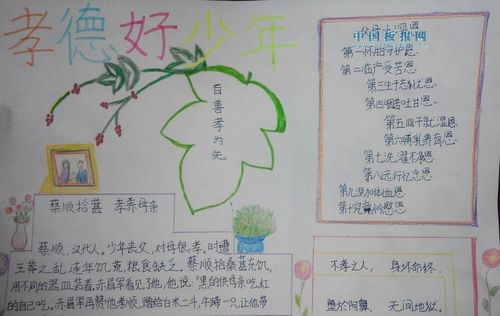 孝德好少年
中国板报网
父母十深恩
第一怀胎守护恩
第二临产受苦恩
第三生子忘忧恩
第四咽苦吐甘恩
第五回干就湿恩
第六哺乳养育恩
第七洗濯不净恩
第八远行忆念恩
第九深加体恤恩
第十究竟怜愍恩
百善孝为先
蔡顺拾葚 孝养母亲
蔡顺、汉代人。少年丧父,对母很孝。时遭
王莽之乱,连年饥荒,粮食缺乏。蔡顺拾桑葚充饥,
用不同的器皿装着。赤眉军看见了他,他说:“黑的供母亲吃,红
的自己吃。赤眉军再赞他孝顺,赠给白米二斗,牛蹄一只,让他带
不孝之人, 身坏命终,
堕於阿鼻, 无间地狱。